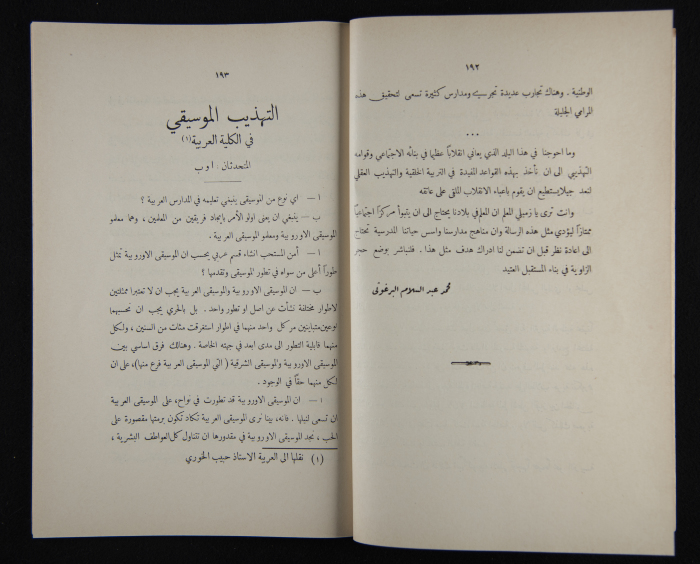 ١٩٢
الوطنية . وهناك تجارب عديدة تجرسيه ومدارس كثيرة تسعى لتحقيق هذه
المرامي الجليلة
...
وما احوجنا في هذا البلد الذي يعاني انقلاباً عظيما في بنائه الاجتماعي وقوامه
التهذيبي الى ان نأخذ بهذه القواعد المفيدة في التربية الخلقية والتهذيب العقلي
لنعد جيلا يستطيع ان يقوم باعباء الانقلاب الملقى على عاتقه
وانت ترى يا زميلي المعلم ان المعلم في بلادنا يحتاج الى ان يتبوأ مركزاً اجتماعياً
ممتازاً ليؤدي مثل هذه الرسالة وان مناهج مدارسنا واسس حياتنا المدرسية تحتاج
الى اعادة نظر قبل ان تضمن لنا ادراك هدف مثل هذا . فلنباشر بوضع حجر
الزاوية في بناء المستقبل العتيد
محمد عبد السلام البرغوثى
١٩٣
التهذيب الموسيقي
في الكلية العربية (١)
المتحدثان : ا و ب
ا — اي نوع من الموسيقى ينبغي تعليمه في المدارس العربية ؟
ب — ينبغي ان يعنى اولو الأمر بايجاد فريقين من المعلمين ، وهما معلمو
الموسيقى الاوروبية ومعلمو الموسيقى العربية .
ا — أمن المستحب انشاء قسم عربي يحسب ان الموسيقى الاوروبية تمثل
طوراً أعلى من سواه في تطور الموسيقى وتقدمها ؟
ب — ان الموسيقى الاوروبية والموسيقى العربية يجب ان لا تعتبرا ممثلتين
لاطوار مختلفة نشأت عن اصل او تطور واحد . بل بالحري يجب ان نحسبهما
نوعين متباينين مر كل واحد منهما في اطوار استغرقت مئات من السنين ، ولكل
منهما قابلية التطور الى مدى ابعد في جهته الخاصة . وهنالك فرق اساسي بين
الموسيقى الاوروبية والموسيقى الشرقية ( التي الموسيقى العربية فرع منها )، على ان
لكل منهما حقاً في الوجود .
ا — ان الموسيقى الاوروبية قد تطورت في نواح، على الموسيقى العربية
ان تسعى لنيلها . فانه، بينا نرى الموسيقى العربية تكاد تكون برمتها مقصورة على
الحب ، نجد الموسيقى الاوروبية في مقدورها ان تتناول كل العواطف البشرية ،
(١) نقلها الى العربية الاستاذ حبيب الخوري